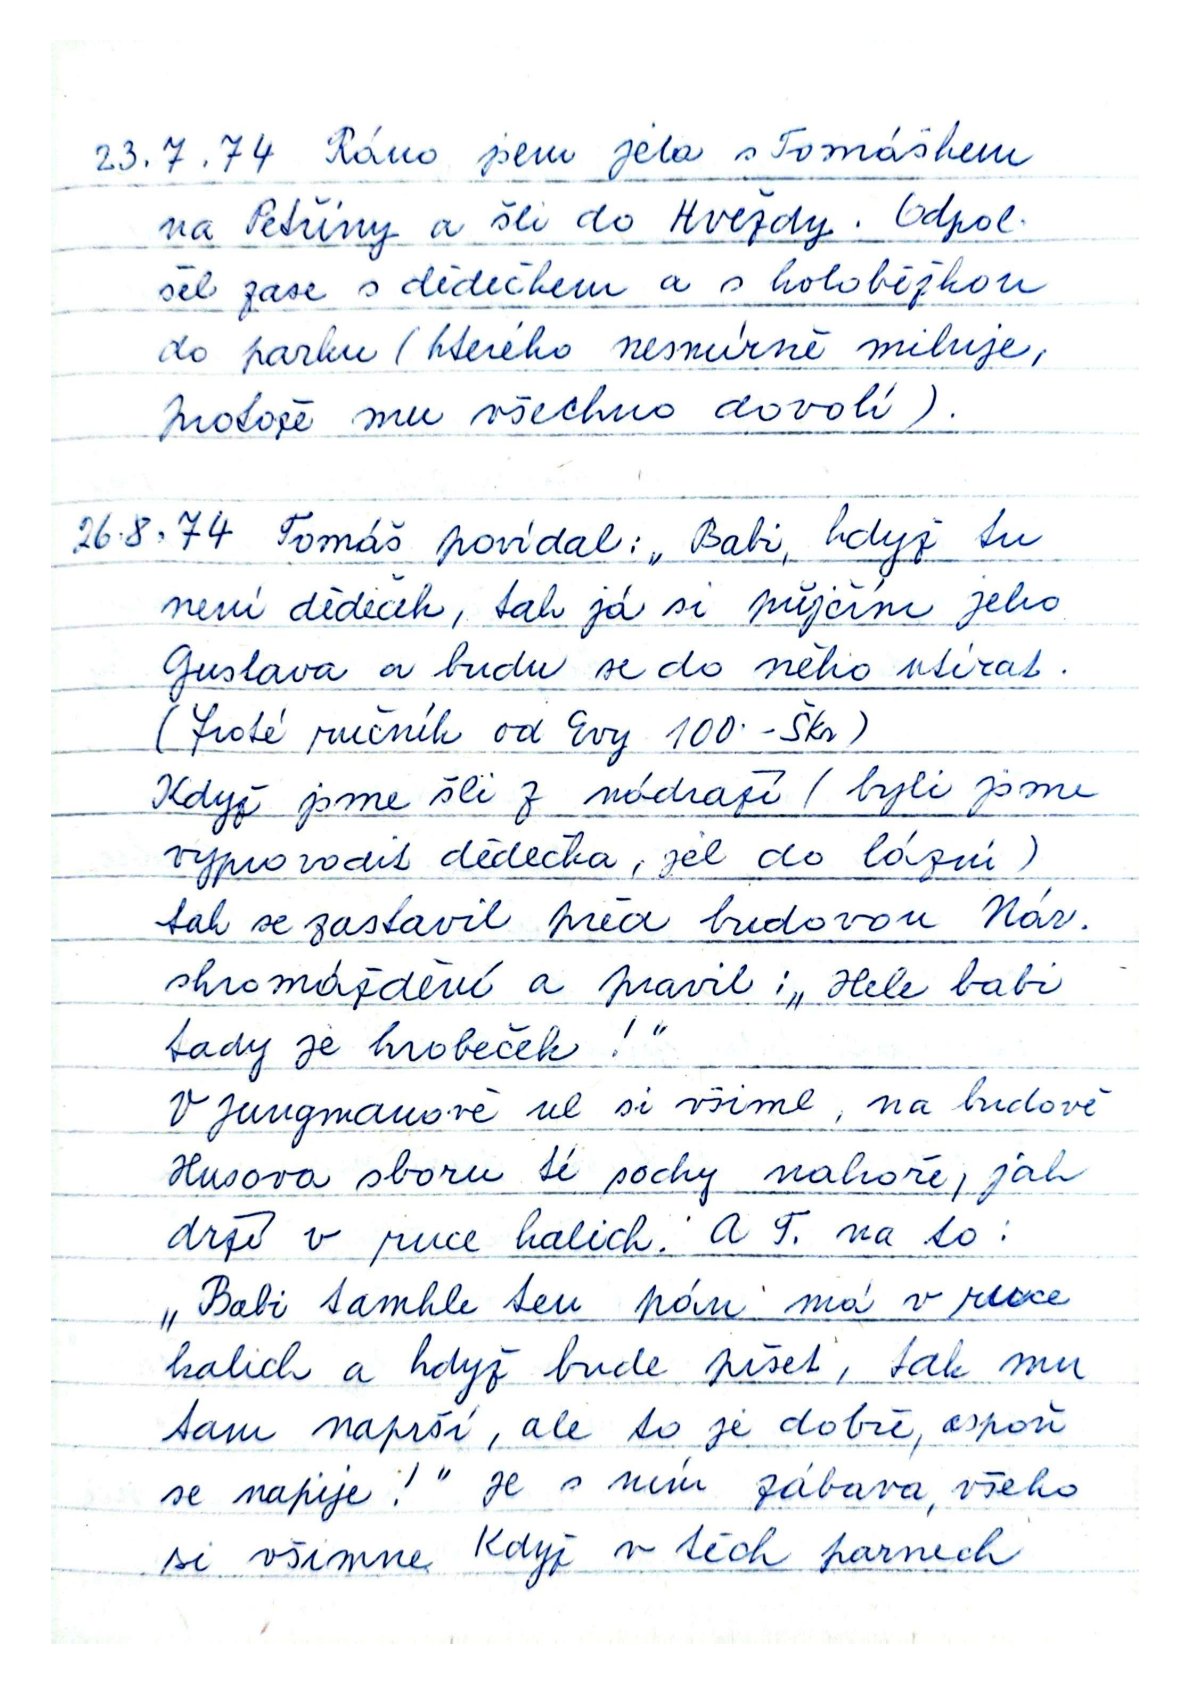 23.7.74 Ráno jsem jela s Tomáškem
na Petřiny a šli do Hvězdy. Odpol.
šel zase s dědečkem a s koloběžkou
do parku (kterého nesmírně miluje,
protože mu všechno dovolí).
26.8.74 Tomáš povídal: „Babi, když tu
není dědeček, tak já si půjčím jeho
Gustava a budu se do něho utírat.
(froté ručník od Evy 100.-Škr)
Když jsme šli z nádraží (byli jsme
vyprovodit dědečka, jel do lázní)
tak se zastavil před budovou Nár.
shromáždění a pravil: „Hele babi
tady je hrobeček!"
V Jungmanově ul si všiml, na budově
Husova sboru té sochy nahoře, jak
drží v ruce kalich. A T. na to:
„Babi tamhle ten pán má v ruce
kalich a když bude pršet, tak mu
tam naprší, ale to je dobře, aspoň
se napije!" Je s ním zábava, všeho
si všimne. Když v těch parnech